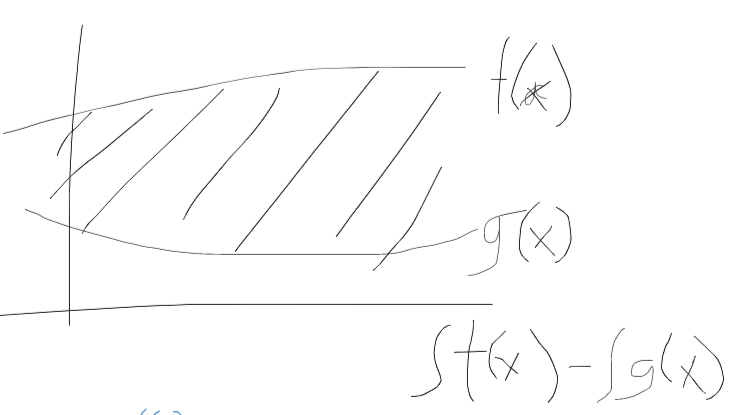 f(x)
g(x)
∫f(x)-∫g(x)